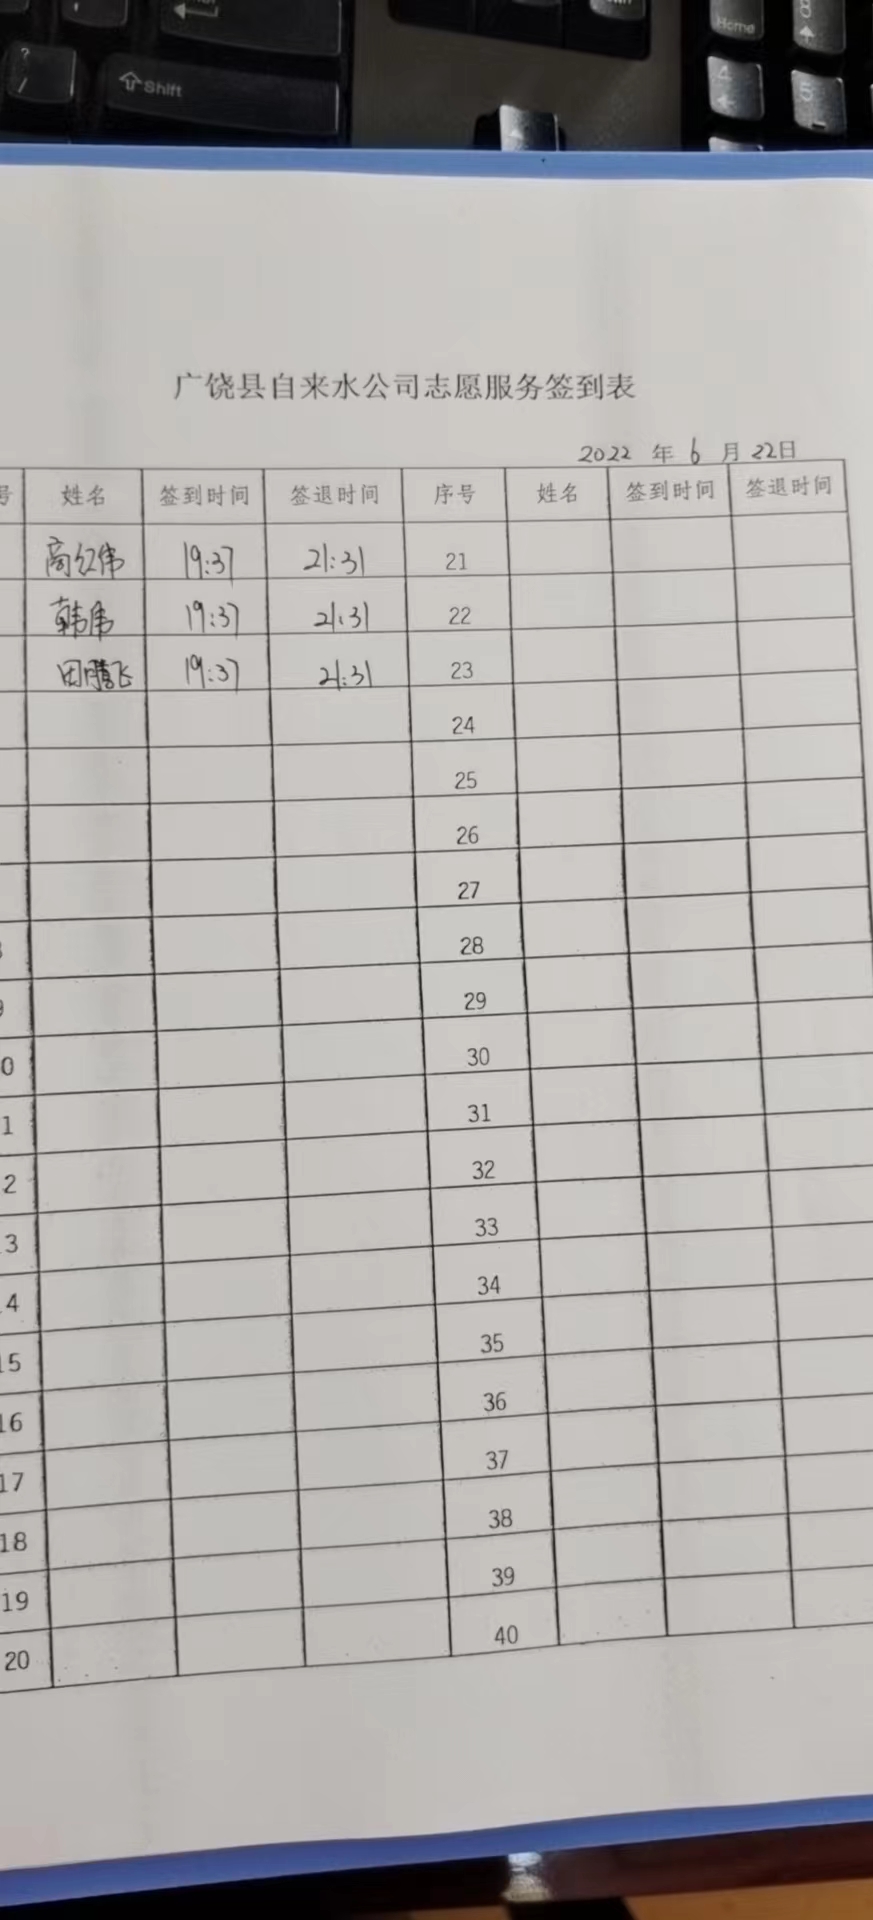 Home
8
?
/
Shift
4
5
广饶县自来水公司志愿服务签到表
2022 年 6 月 22日
号 姓名 签到时间 签退时间 序号 姓名 签到时间 签退时间
高红伟 19:37 21:31 21
韩伟 19:37 21:31 22
田腾飞 19:37 21:31 23
24
25
26
27
28
9 29
0 30
1 31
2 32
3 33
4 34
15 35
16 36
17 37
18 38
19 39
20 40